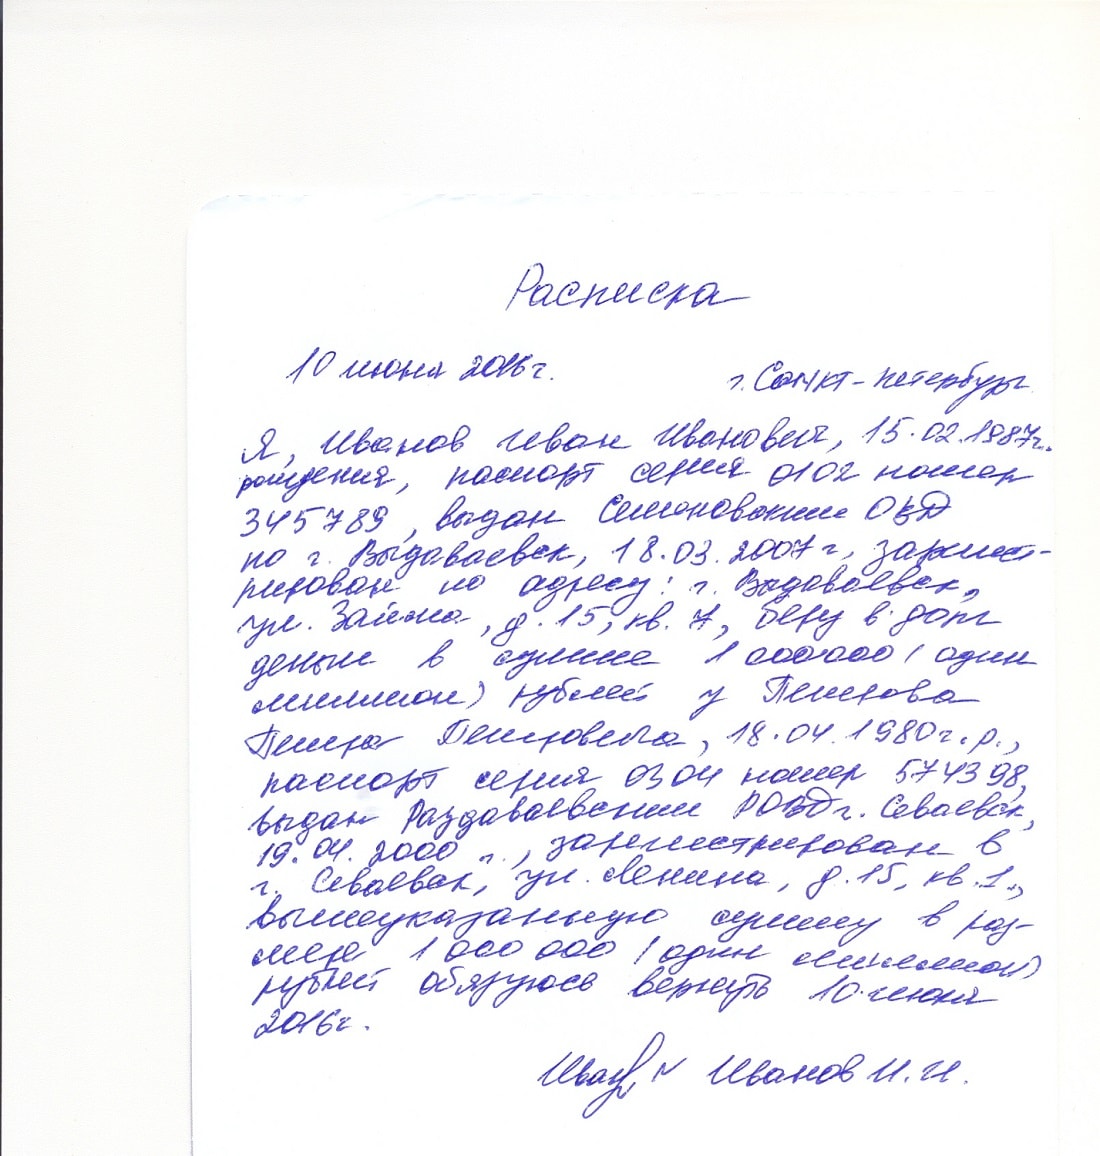 Расписка
10 июня 2016г. г. Санкт-Петербург
Я, Иванов Иван Иванович, 15.02.1987г.
рождения, паспорт серия 0102 номер
345789, выдан Семеновским ОВД
по г. Выдаваевск, 18.03.2007г, зарегист-
рирован по адресу: г. Выдаваевск,
ул. Займа, д. 15, кв. 7, беру в долг
деньги в сумме 1 000000 (один
миллион) рублей у Петрова
Петра Петровича, 18.04.1980г.р.,
паспорт серия 0304 номер 574398,
выдан Раздаваевским РОВД г. Севаевск,
19.04.2000 г., зарегистрирован в
г. Севаевск, ул. Ленина, д. 15, кв. 1.,
вышеуказанную сумму в раз-
мере 1 000 000 (один миллион)
рублей обязуюсь вернуть 10 июня
2016г.
Иванов И.И.